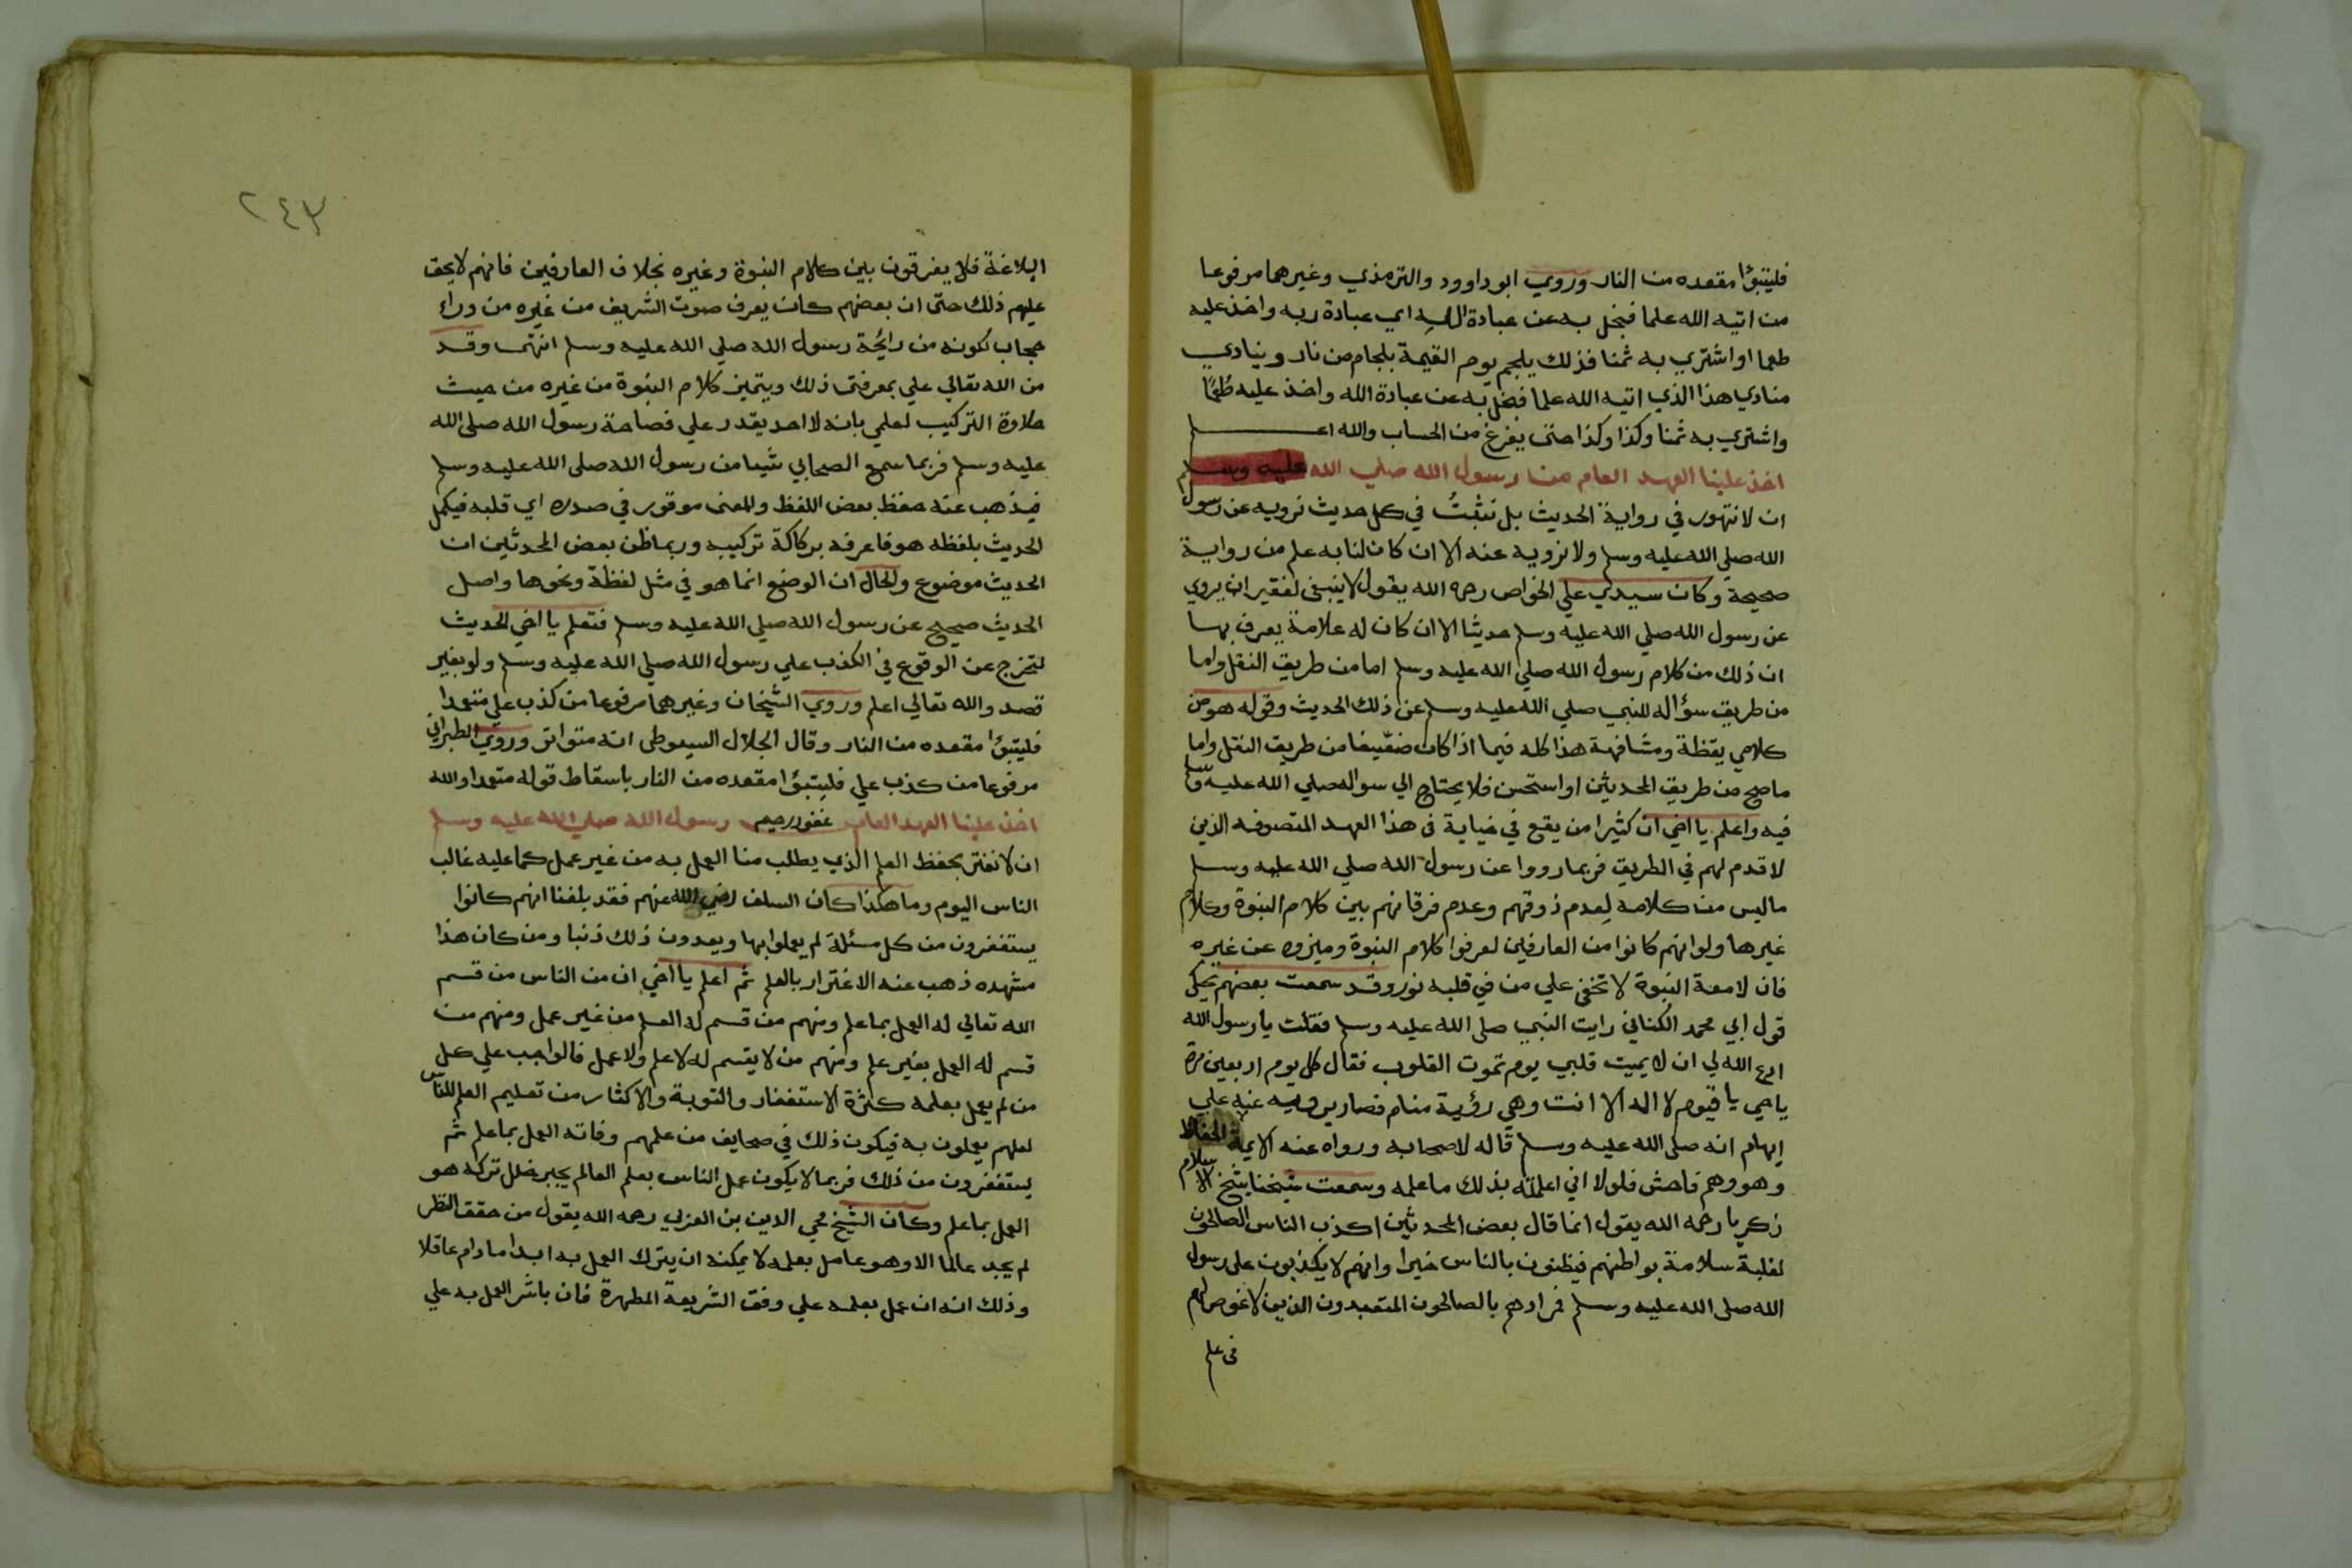 فليتبوٴا مقعده من النار وروي ابو داوود والترمذي وغيرهما مرفوعا
من اتيه الله علما فبخل به عن عبادة الله اي عبادة ربه واخذ عليه
طمعا او اشتري به ثمنا فذلك يلجم يوم القيمة بلجام من نار وينادي
منادي هذا الذي اتيه الله علما فبخل به عن عبادة الله واخذ عليه طمعًا
واشتري به ثمنا وكذا وكذا حتى يفرغ من الحساب والله اعلم
اخذ علينا العهد العام من رسول الله صلي الله عليه وسلم
ان لا نتهور في رواية الحديث بل نتثبتُ في كل حديث نرويه عن رسول
الله صلي الله عليه وسلم ولا نرويه عنه الا ان كان لنا به علم من رواية
صحيحة وكان سيدي علي الخواص رحمه الله يقول لا ينبغي لفقير ان يروي
عن رسول الله صلي الله عليه وسلم حديثا الا ان كان له علامة يعرف بها
ان ذلك من كلام رسول الله صلي الله عليه وسلم اما من طريق النقل واما
من طريق سؤاله للنبي صلي الله عليه وسلم عن ذلك الحديث وقوله هو من
كلامي يقظة ومشافهة هذا كله فيما اذا كان ضعيفا من طريق النقل واما
ما صح من طريق المحدثين او استحسن فلا يحتاج الي سواله صلي الله عليه وسلم
فيه واعلم يا اخي ان كثيرا من يقع في خيانة في هذا العهد المتصوفه الذين
لا قدم لهم في الطريق فربما رووا عن رسول الله صلي الله عليه وسلم
ما ليس من كلامه لِعدم ذوقهم وعدم فرقانهم بين كلام النبوة وكلام
غيرها ولو انهم كانوا من العارفين لعرفوا كلام النبوة وميزوه عن غيره
فان لامعة النبوة لا تخفي علي من في قلبه نور وقد سمعت بعضهم يحكي
قول ابي محمد الكتاني رايت النبي صلي الله عليه وسلم فقلت يا رسول الله
ادع الله لي ان لا يميت قلبي يوم تموت القلوب فقال كل يوم اربعين مرة
يا حي يا قيوم لا اله الا انت وهي رؤية منام فصار يرويه عنه علي
ايهام انه صلي الله عليه وسلم قاله لاصحابه ورواه عنه الايمة الحفاظ
وهو وهم فاحش فلولا اني اعلمته بذلك ما علمه وسمعت شيخنا شيخ الاسلام
زكريا رحمه الله يقول انما قال بعض المحدثين اكذب الناس الصالحون
لغلبة سلامة بواطنهم فيظنون بالناس خيرا وانهم لا يكذبون علي رسول
الله صلي الله عليه وسلم فمرادهم بالصالحون المتعبدون الذين لا غوص لهم
في علم
٢٤٣
البلاغة فلا يفرقون بين كلام النبوة وغيره بخلاف العارفين فانهم لا يخفي
عليهم ذلك حتى ان بعضهم كان يعرف صوت الشريف من غيره من وراء
حجاب لكونه من رايحة رسول الله صلي الله عليه وسلم انتهى وقد
من الله تعالي علي بمعرفتى ذلك ويتميز كلام النبوة من غيره من حيث
حلاوة التركيب لعلمي بانه لا احد يقدر علي فصاحة رسول الله صلي الله
عليه وسلم فربما سمع الصحابي شيا من رسول الله صلي الله عليه وسلم
فيذهب عنه حفظ بعض اللفظ والمعنى موقور في صدره اي قلبه فيكمل
الحديث بلفظه هو فاعرفه بركاكة تركيبه وربما ظن بعض المحدثين ان
الحديث موضوع والحال ان الوضع انما هو في مثل لفظة ونحوها واصل
الحديث صحيح عن رسول الله صلي الله عليه وسلم فتعلم يا اخي الحديث
لتخرج عن الوقوع في الكذب علي رسول الله صلي الله عليه وسلم ولو بغير
قصد والله تعالي اعلم وروي الشيخان وغيرهما مرفوعا من كذب علي متعمدا
فليتبوٴا مقعده من النار وقال الجلال السيوطي انه متواتر وروي الطبراني
مرفوعا من كذب علي فليتبوٴا مقعده من النار باسقاط قوله متعمدا والله
غفور رحيم
اخذ علينا العهد العام رسول الله صلي الله عليه وسلم
ان لا نغتر بحفظ العلم الذي يطلب منا العمل به من غير عمل كما عليه غالب
الناس اليوم وما هكذا كان السلف رضي الله عنهم فقد بلغنا انهم كانوا
يستغفرون من كل مسئلة لم يعملوا بها ويعدون ذلك ذنبا ومن كان هذا
مشهده ذهب عنه الاغترار بالعلم ثم اعلم يا اخي ان من الناس من قسم
الله تعالي له العمل بما علم ومنهم من قسم له العلم من غير عمل ومنهم من
قسم له العمل بغير علم ومنهم من لا يقسم له لا علم ولا عمل فالواجب علي كل
من لم يعمل بعلمه كثرة الاستغفار والتوبة والاكثار من تعليم العلم للناس
لعلهم يعملون به فيكون ذلك في صحايف من علمهم وفاته العمل بما علم ثم
يستغفرون من ذلك فربما لا يكون عمل الناس بعلم العالم يجبر خلل تركه هو
العمل بما علم وكان الشيخ محي الدين بن العزبي رحمه الله يقول من حقق النظر
لم يجد عالما الا وهو عامل بعلمه لا يمكنه ان يترك العمل به ابدا ما دام عاقلا
وذلك انه ان عمل بعلمه علي وفق الشريعة المطهرة فان باشر العمل به علي